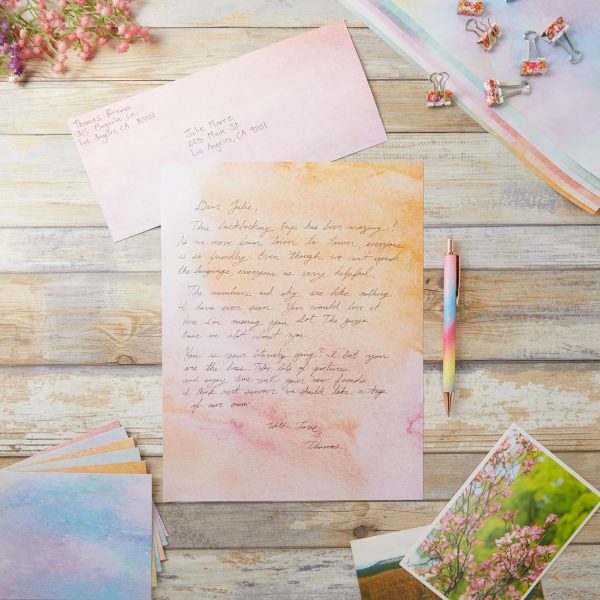 Thomas Brown
315 Magnolia Ln
Los Angeles, CA 90021
Julie Moore
225 Main St.
Los Angeles, CA 91101
Dear Julie,
This backpacking trip has been amazing!
As we move from town to town, everyone
is so friendly. Even though we can't speak
the language, everyone is very helpful.
The mountains and sky are like nothing
I have ever seen. You would love it
here. I'm missing you alot. The guys
tease me alot about you.
How is your internship going? I bet you
are the boss. Take lots of pictures
and enjoy time with your new friends.
I think next summer we should take a trip
of our own.
With Love,
Thomas